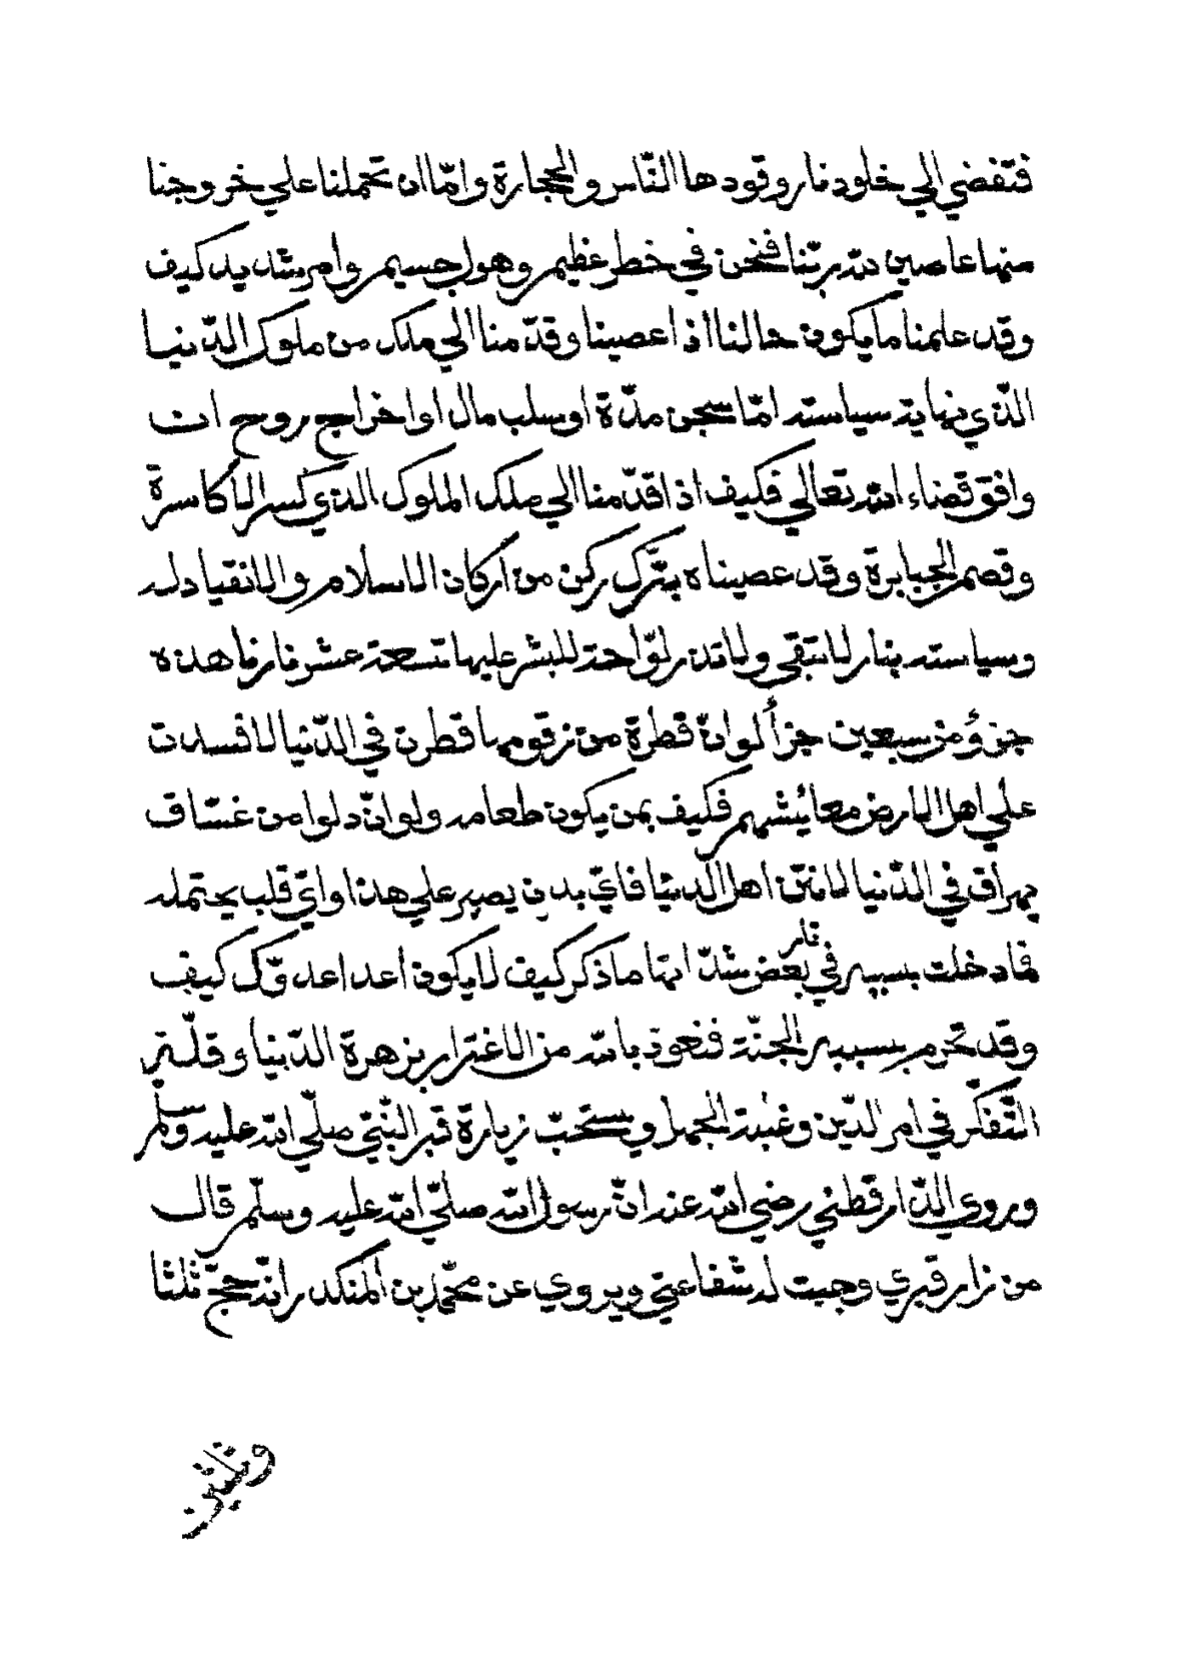 فتفضي الي خلود نار وقودها النّاس والحجارة وامّا ان تحملنا علي خروجنا
منها عاصين لله ربّنا فنحن في خطر عظيم وهول جسيم وامر شديد كيف
وقد علمنا ما يكون حالنا اذا عصينا وقدّمنا الي ملك من ملوك الدّنيا
الّذي نهاية سياسته امّا سجن مدّة او سلب مال او اخراج روح ان
وافق قضاء الله تعالي فكيف اذا قدّمنا الي ملك الملوك الذي كسر الاكاسرة
وقصم الجبابرة وقد عصيناه بترك ركن من اركان الاسلام والانقياد له
وسياسته بنار لا تبقي ولا تذر لوّاحة للبشر عليها تسعة عشر نارنا هذه
جزؤ من سبعين جزأ لو انّ قطرة من زقومها قطرت في الدّنيا لافسدت
علي اهل الارض معائيشهم فكيف بمن يكون طعامه ولو انّ دلوا من غسّاق
يهراق في الدّنيا لانتن اهل الدنيا فايّ بدن يصبر علي هذا او ايّ قلب يحتمله
فاذ دخلت بسببه في نار بعض شدّاتها ما ذكر كيف لا يكون اعدا عدوّك كيف
وقد تحرم بسببه الجنّة فنعوذ بالله من الاغترار بزهرة الدّنيا وقلّة
التّفكّر في امر الدّين وغلبة الجهل ويستحبّ زيارة قبر النّبيّ صلّي الله عليه وسلّم
وروي الدّارقطني رضي الله عنه انّ رسول الله صلّي الله عليه وسلّم قال
من زار قبري وجبت له شفاعتي ويروي عن محمّد بن المنكدر انّه حجّ ثلثا
وثلثين